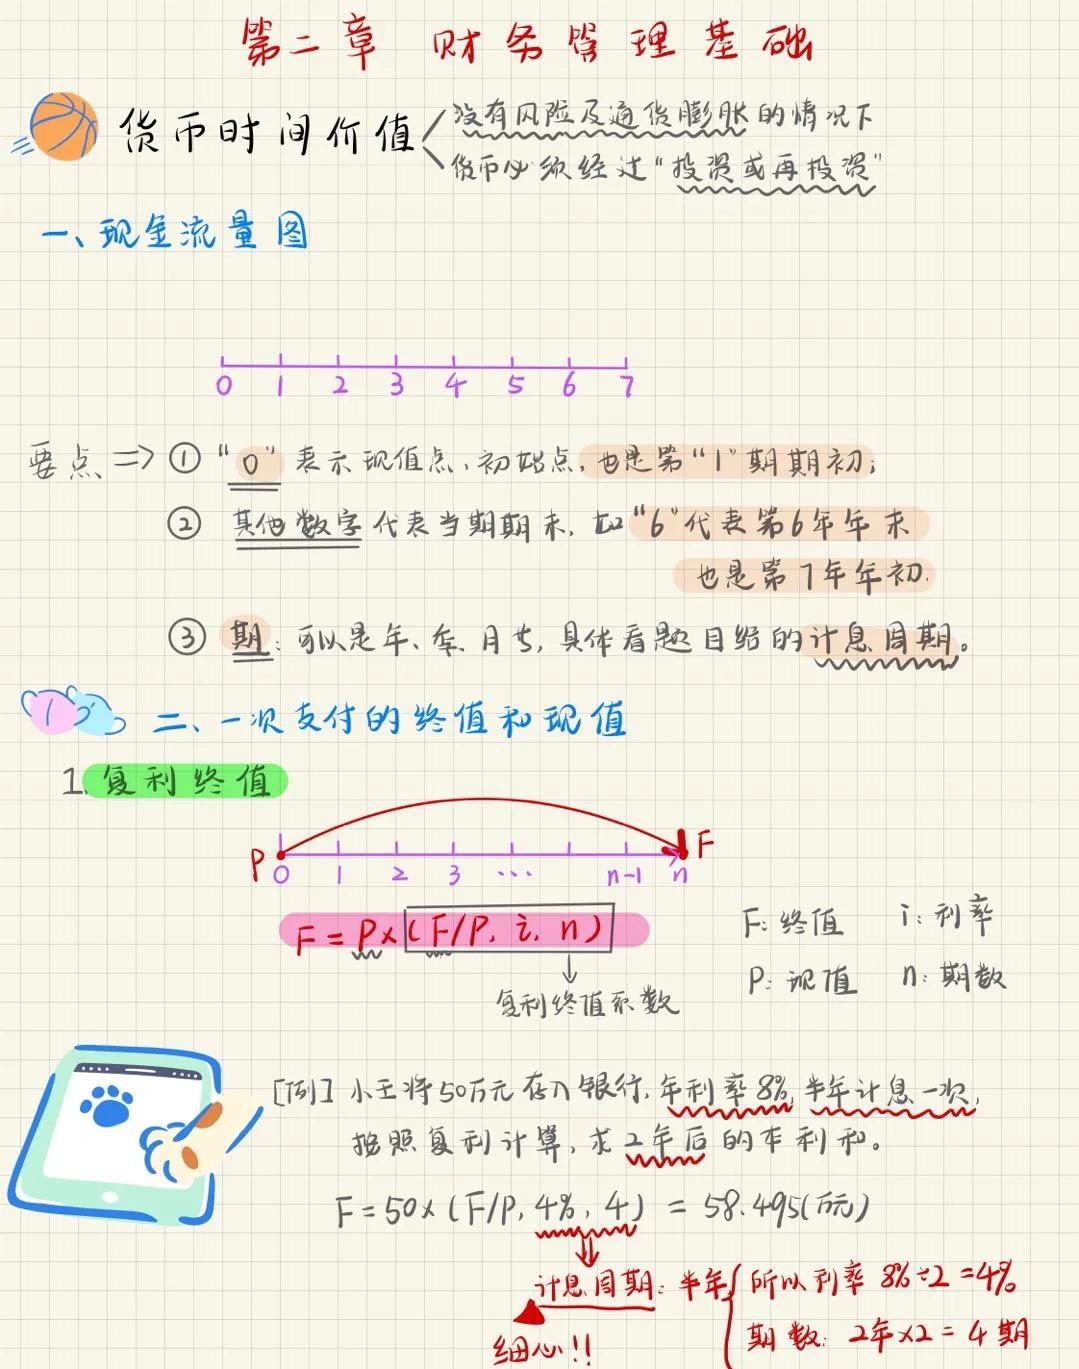 第二章 财务管理基础
货币时间价值
没有风险及通货膨胀的情况下
货币必须经过“投资或再投资”
一、现金流量图
0 1 2 3 4 5 6 7
要点 => ① “0”表示现值点、初始点,也是第“1”期期初;
② 其他数字代表当期期末,如“6”代表第6年年末
也是第7年年初.
③ 期:可以是年、季、月等,具体看题目给的计息周期。
二、一次支付的终值和现值
1.复利终值
P F
0 1 2 3 ... n-1 n
F = P×(F/P, i, n)
F:终值 i:利率
P:现值 n:期数
复利终值系数
[例] 小王将50万元存入银行,年利率8%,半年计息一次,
按照复利计算,求2年后的本利和。
F=50×(F/P, 4%, 4) = 58.495(万元)
计息周期:半年
所以利率 8%÷2=4%
期数:2年×2=4期
细心!!